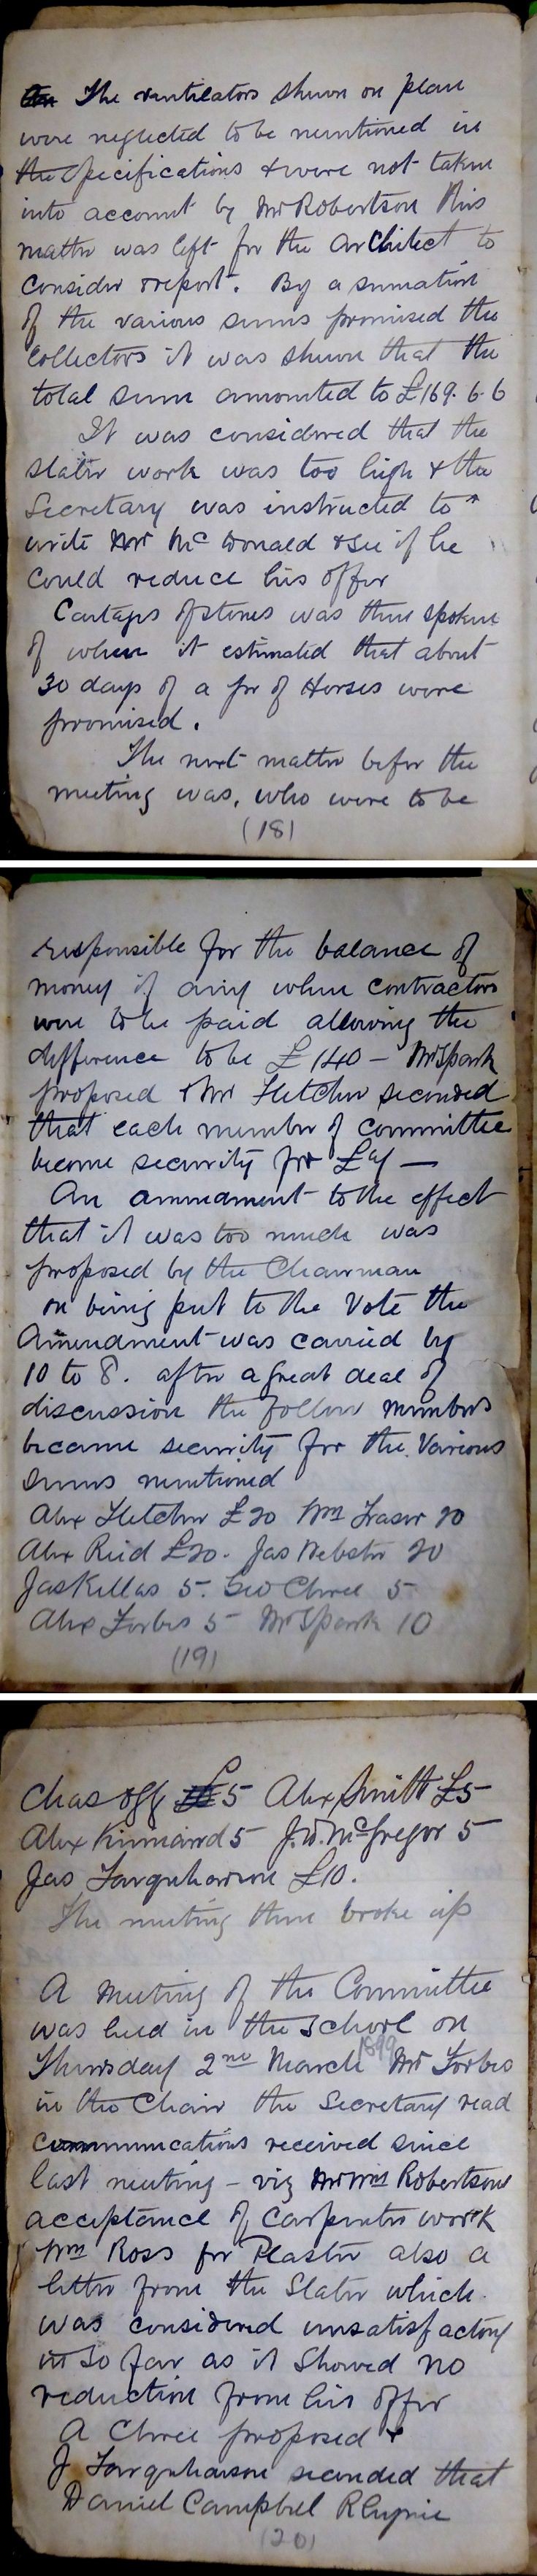 The ventilators shewn on plan
were neglected to be mentioned in
the specifications & were not taken
into account by Mr Robertson this
matter was left for the Architect to
consider & report. By a sumation
of the various sums promised the
Collectors it was shewn that the
total sum amounted to £169.6.6
It was considered that the
slater work was too high & the
Secretary was instructed to
write Mr McDonald & see if he
could reduce his offer
Cartages of stones was then spoken
of when it estimated that about
30 days of a pr of Horses were
promised.
The next matter befor the
meeting was, who were to be
(18)
responsible for the balance of
money if any when contractors
were to be paid allowing the
difference to be £140 - Mr Spark
proposed & Mr Fletcher seconded
that each member of committee
become security for
An ammendment to the effect
that it was too much was
proposed by the Chairman
on being put to the Vote the
Amendment was carried by
10 to 8. after a great deal of
discussion the follow members
became security for the various
sums mentioned
Alex Fletcher £20 Wm Fraser 20
Alex Reid £20. Jas Webster 20
Jas Killas 5. Geo Chree 5
Alex Forbes 5 Mr Spark 10
(19)
Chas Ogg £5 Alex Smith £5
Alex Kinnaird 5 J.W. McGregor 5
Jas Farquharson £10.
The meeting then broke up
A meeting of the Committee
was held in the School on
Thursday 2nd March 1899 Mr Forbes
in the Chair the Secretary read
communications received since
last meeting - viz Mr Wm Robertsons
acceptance of Carpenter work
Wm Ross for Plaster also a
letter from the Slater which
was considered unsatisfactory
in so far as it showed no
reduction from his offer
A Chree proposed &
J Farquharson seconded that
Daniel Campbel Rhynie
(20)